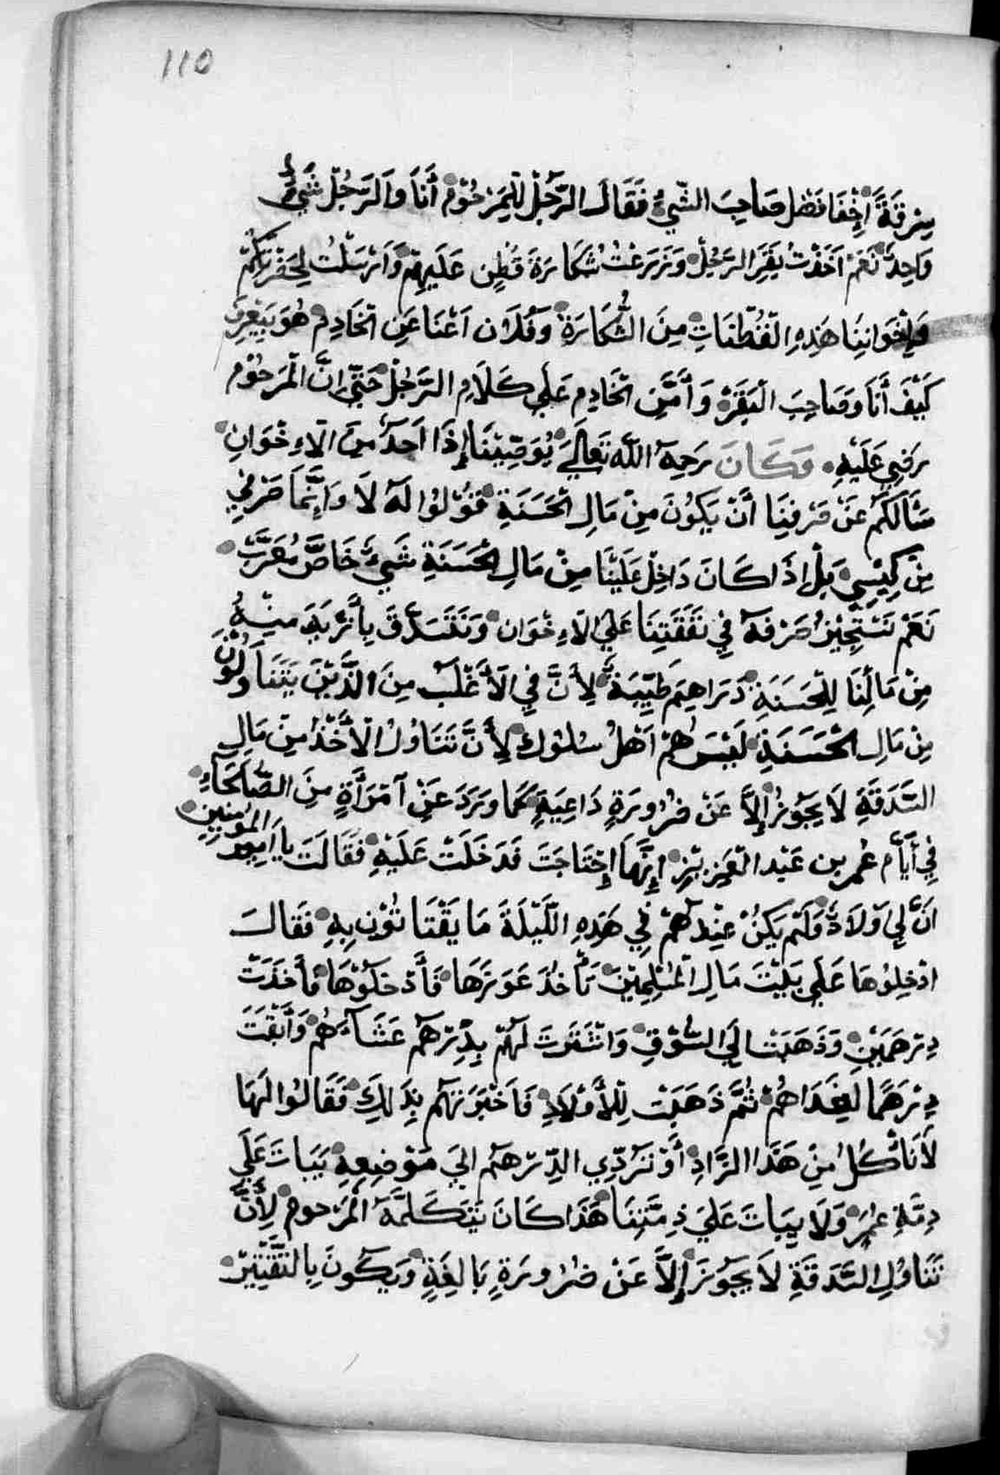 110
سِرْقَةً إِخْفَا فَضْل صَاحِبَ الشَّيْءِ فَقَالَ الرَّجُلْ لِلْمَرْحُوْمْ أَنَا وَالرَّجُلْ شَيْءٌ
وَاحِدٌ نَعَمْ اَخَذْتُ بَقَرَ الرَّجُلْ وَزَرَعْتُ شَكَارَةَ قُطِنٍ عَلَيهِمْ وَاَرْسَلْتُ لِحَضْرَتِكُمْ
وَلِاِخْوَانِنَا هَذِهِ الْقُطْنَاتِ مِنَ الشُّكَارَةِ وَفُلَان اَعْنَا عَنِ الْخَادِمْ هُوَ يَعْرِفْ
كَيْفَ أَنَا وَصَاحِبَ الْبَقَرْ وَأَمَّنَ الْخَادِمِ عَلَي كَلَامِ الرَّجُلْ حَتَّى اِنَّ الْمَرحُوْم
رَضِي عَلَيْهِ وَكَانَ رَحِمَهُ اللَّهُ تَعَالَي يُوَصِّيْنَا إِذَا اَحَدٌ مِنَ الْاِخْوَانِ
سَأَلَكُمْ عَنْ صَرْفِنَا أَنْ يَكُونَ مِنْ مَالِ الْحَسَنَةِ قُوْلُوْا لَهُ لَا وَاِنَّمَا صَرْفِي
مِنْ كِيْسِي بَلْ إِذَا كَانَ دَاخِلْ عَلَيْنَا مِنْ مَالِ الْحَسَنَةِ شَيْءٌ خَاصٌّ مُقَرَّبْ
نَعَمْ نَسْتَجِيْزُ صَرْفَهُ فِي نَفَقَتِنَا عَلَي الْاِخْوَان وَنَتَصَدَّقَ بِأَزْيَدَ مِنْهُ
مِنْ مَالِنَا لِلْحَسَنَةِ دَرَاهِمَ طَيِّبَةً لِأَنَّ فِي الْأَغْلَبْ مِنَ الَّذِيْنَ يَتَنَاوَلُوْنَ
مِنْ مَالِ الْحَسَنَةِ لَيْسَ هُمْ اَهْلُ سُلُوْكْ لِأَنَّ تَنَاوُلُ الْأَخْذُ مِنْ مَالِ
الصَّدَقَةِ لَا يَجُوْزُ إِلَّا عَنْ ضُرُورَةٍ دَاعِيَةٍ كَمَا وَرَدَ عَنْ آمْرَأَةٍ مِنَ الصَّلَحَاءِ
فِي أَيَّام عُمَر بن عَبْد الْعَزِيْزِ إِنَّهَا إِحْتَاجَتْ فَدَخَلَتْ عَلَيْهِ فَقَالَتْ يا اَمِير الْمُؤمِنِين
اَنَّ لِي اَوْلَادٌ وَلَمْ يَكُنْ عِنْدهُمْ فِي هَذِهِ اللَّيْلَةَ مَا يَقْتَاتُوْن بِهِ فَقَالَ
ادْخِلُوهَا عَلَى بَيْتَ مَالِ الْمُسْلِمِيْنَ تَأْخُذَ عَوَزَهَا فَأَدْخَلُوْهَا فَأَخَذَتْ
دِرْهَمَيْنِ وَذَهَبَتْ اِلَي السُّوْقِ وَاشْتَرَتْ لَهُمْ بِدِرْهَم عَشَاءَهُمْ وَأَبْقَتْ
دِرْهَمًا لِغَدَاهُمْ ثُمَّ ذَهَبَتْ لِلْأَوْلَادِ فَاَخْبَرَتْهُم بِذَلِكَ فَقَالُوا لَهَا
لَا نَاْكُلُ مِنْ هَذَا الزَّادِ أَوْ تَرُدِّي الدِّرْهَمْ اِلَى مَوْضِعِهِ يَبَاتَ عَلَي
ذِمَّةِ عُمَرْ وَلَا يَبَاتَ عَلَي ذِمَّتِنَا هَذَا كَانَ يَتَكَلَّمَهُ الْمَرْحوم لِأَنَّ
تَنَاوُلِ الصَّدَقَةِ لَا يَجُوْزَ إِلَّا عَنْ ضُرُورَةٍ بَالِغَةٍ وَيَكُوْنَ بِالتَّقْتِيْرْ